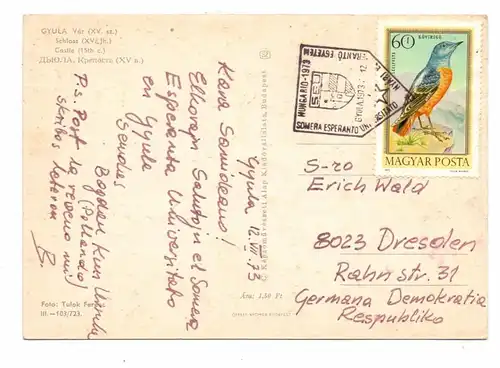 GYULA Vár (XV. sz.)
Schloss (XV. Jh.)
Castle (15th c.)
ДЬЮЛА. Крепость (XV в.)
Gyula 12.VII.73
Kara Samideano!
Elkorajn Salutojn el Somera
Esperanta Universitato
en Gyula
Sendas
Bogdan Kun
(Pollando)
P.s. Post la reveno mi
skribos leteron
B.
Foto: Tulok Ferenc
III.—103/723.
Képzőművészeti Alap Kiadóvállalata, Budapest
Ára: 1,50 Ft
HUNGARIO-1973
SEU
SOMERA ESPERANTO UNIVERSITATO
GYULA 1973.
60 f
MAGYAR POSTA
S-ro
Erich Wald
8023 Dresden
Rahnstr. 31
Germana Demokratia
Respubliko